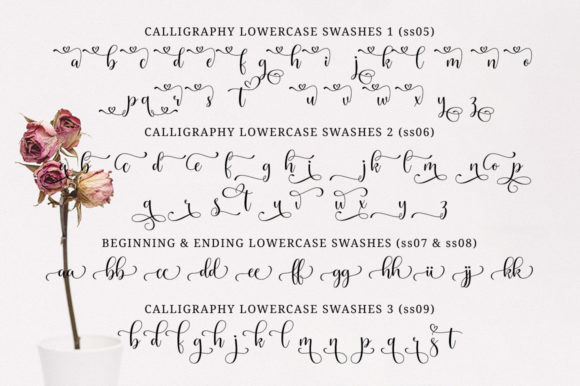 CALLIGRAPHY LOWERCASE SWASHES 1 (ss05)
a b c d e f g h i j k l m n o
p q r s t u v w x y z
CALLIGRAPHY LOWERCASE SWASHES 2 (ss06)
a b c d e f g h i j k l m n o p
q r s t u v w x y z
BEGINNING & ENDING LOWERCASE SWASHES (ss07 & ss08)
aa bb cc dd ee ff gg hh ii jj kk
CALLIGRAPHY LOWERCASE SWASHES 3 (ss09)
b d f g h j k l m n p q r s t